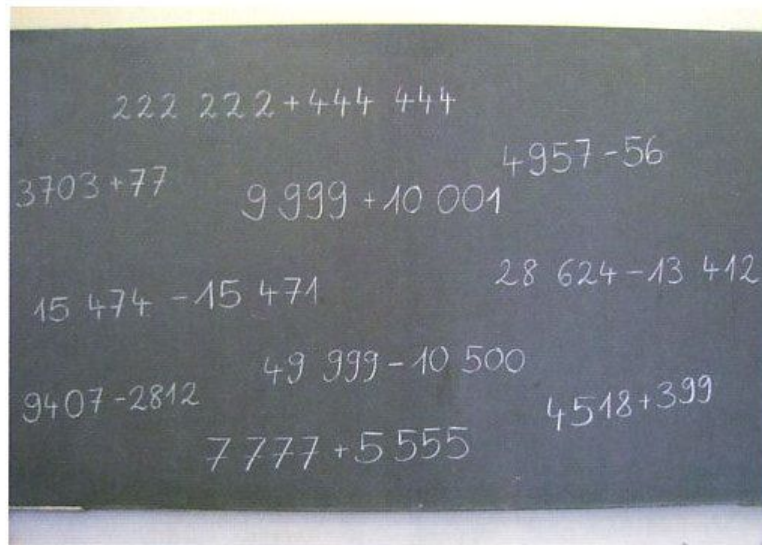 222 222+444 444
4957-56
3703+77
9 999+10 001
28 624-13 412
15 474-15 471
49 999-10 500
9407-2812
4518+399
7 777+5 555